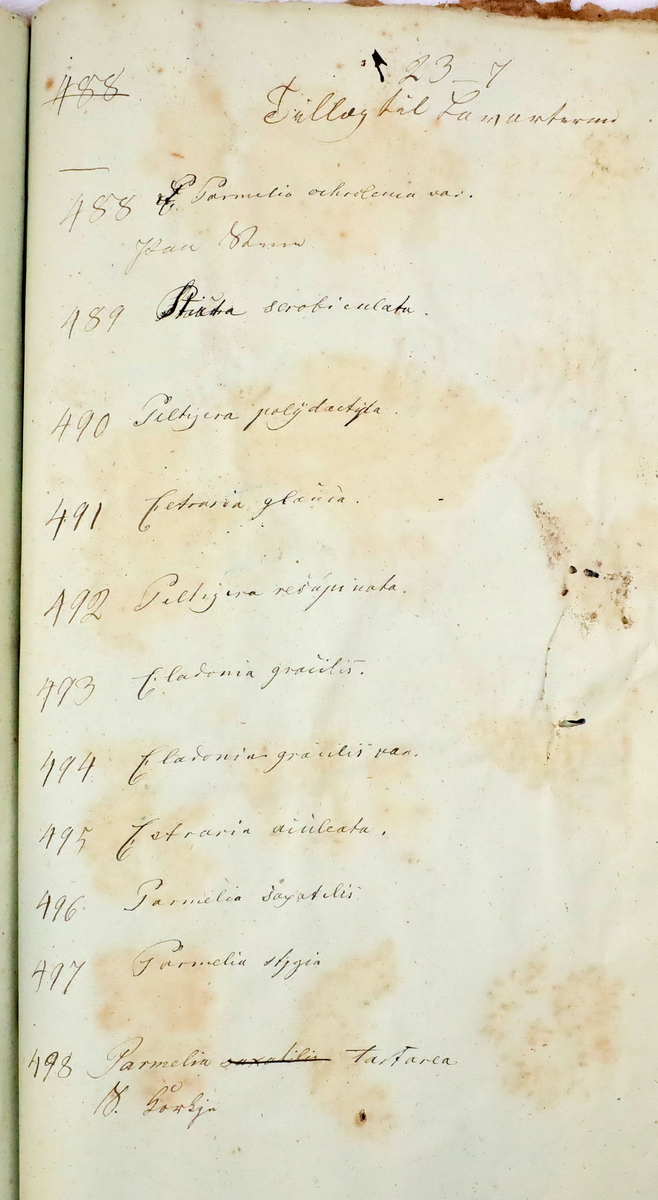 23-7
488
Tillæg til Lavarterne
488 Parmelia ochroleuca var.
489 Sticta scrobiculata.
490 Peltigera polydactyla.
491 Cetraria glauca.
492 Peltigera resupinata.
493 Cladonia gracilis.
494 Cladonia gracilis var.
495 Cetraria aculeata.
496 Parmelia saxatilis
497 Parmelia stygia
498 Parmelia saxatilis tartarea
N. Korkje